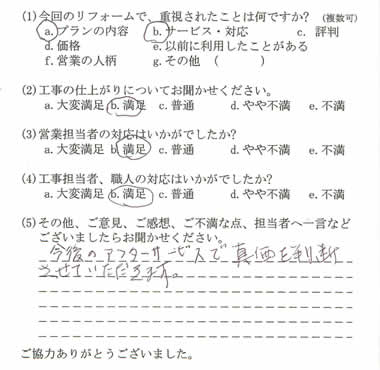 (1)今回のリフォームで、重視されたことは何ですか?(複数可)
a.プランの内容 b.サービス・対応 c.評判
d.価格 e.以前に利用したことがある
f.営業の人柄 g.その他 ( )
(2)工事の仕上がりについてお聞かせください。
a.大変満足 b.満足 c.普通 d.やや不満 e.不満
(3)営業担当者の対応はいかがでしたか?
a.大変満足 b.満足 c.普通 d.やや不満 e.不満
(4)工事担当者、職人の対応はいかがでしたか?
a.大変満足 b.満足 c.普通 d.やや不満 e.不満
(5)その他、ご意見、ご感想、ご不満な点、担当者へ一言など
ございましたらお聞かせください。
今後のアフターサービスで真価を判断
させていただきます。
ご協力ありがとうございました。